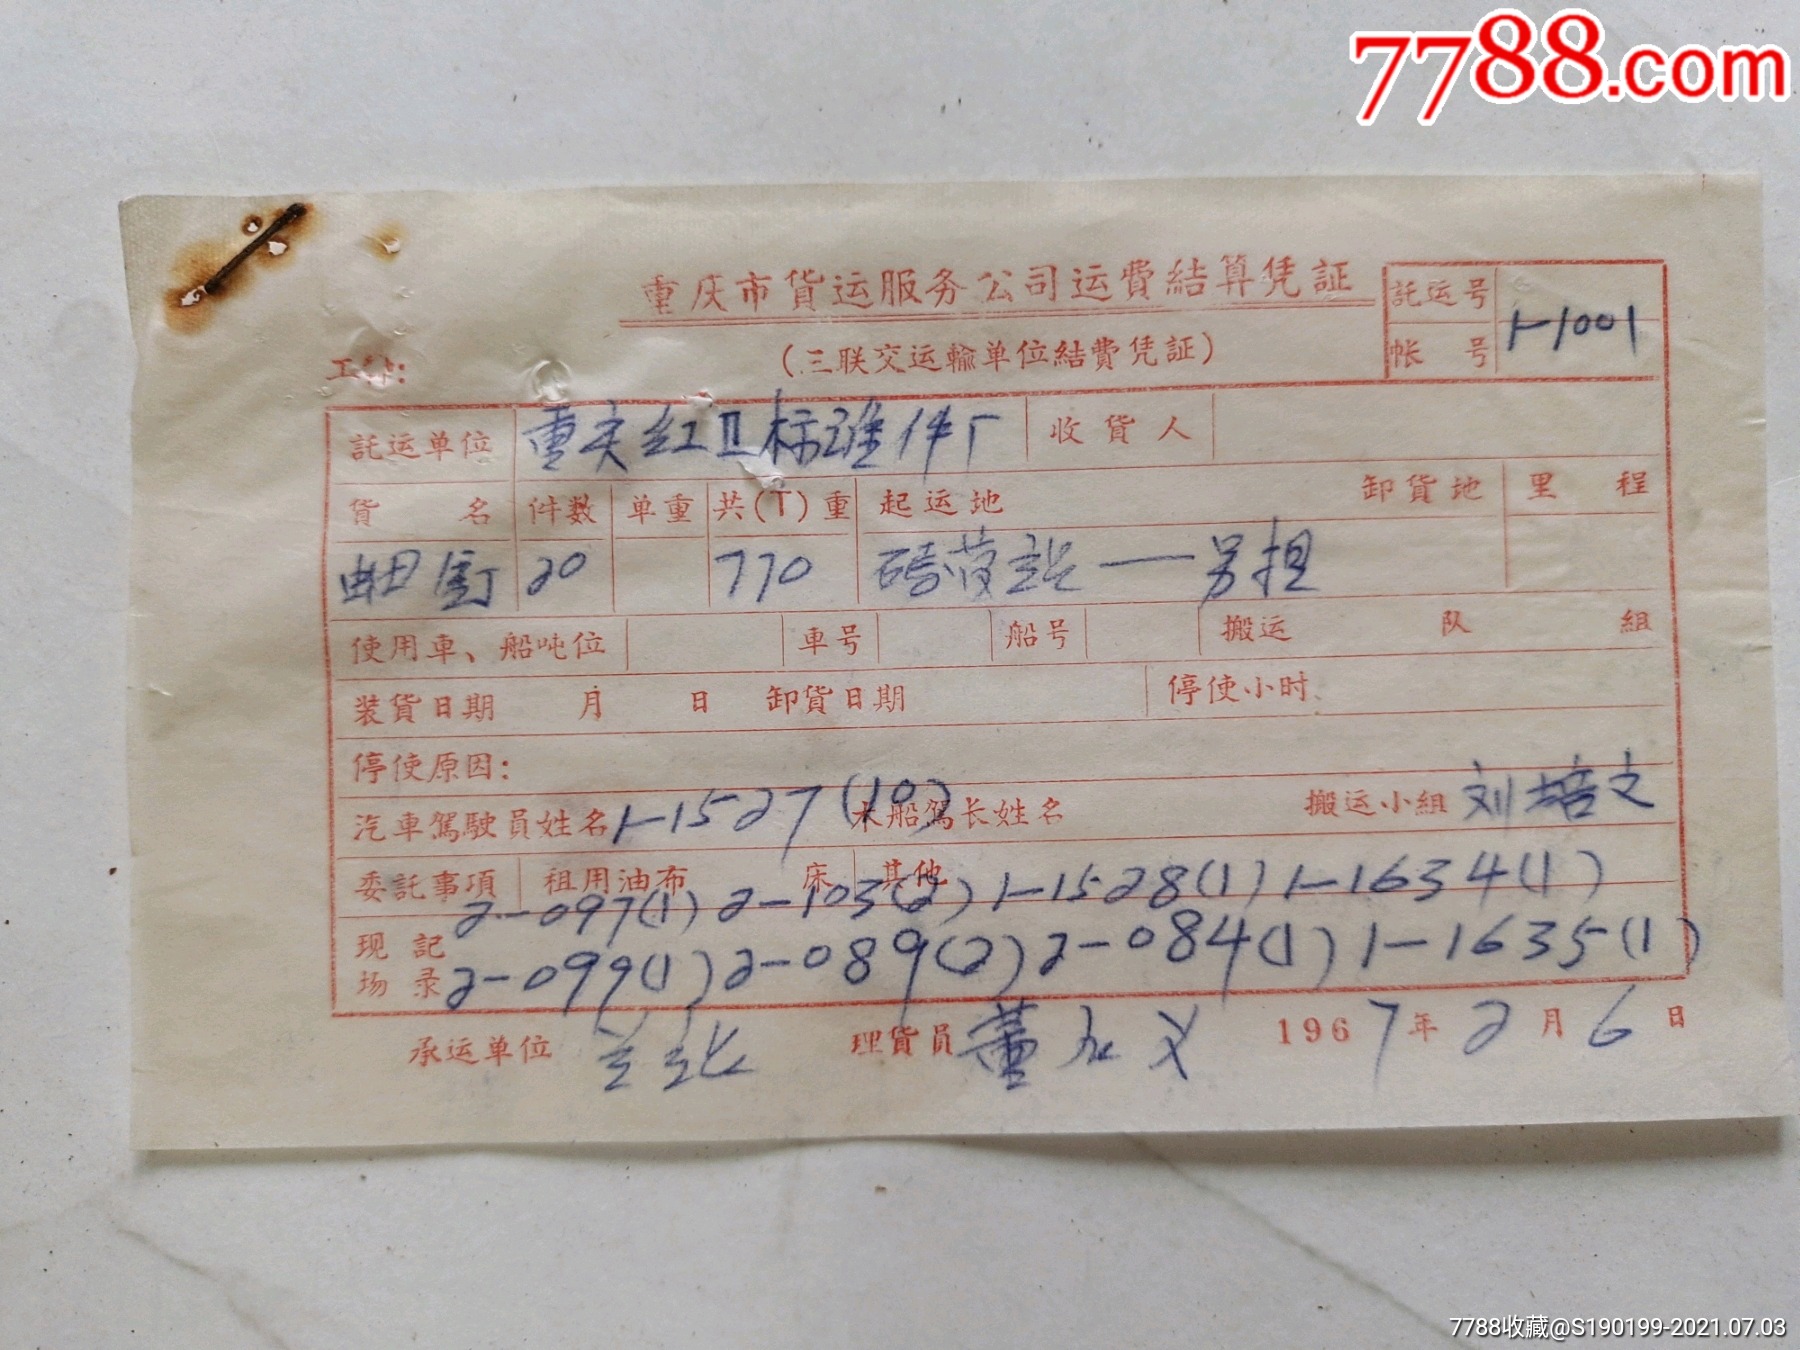 7788.com
重庆市貨运服务公司运費結算凭証
託运号 1-1001
(三联交运輸单位結費凭証)
帐 号
託运单位 重庆红卫标准件厂 收貨人
貨 名 件数 单重 共(T)重 起运地 卸貨地 里 程
20 770
使用車、船吨位 車号 船号 搬运 队 組
装貨日期 月 日 卸貨日期 停使小时
停使原因:
汽車駕駛員姓名 1-1527(10) 木船駕长姓名 搬运小組 刘培文
委託事項 租用油布 床 其他
2-097(1) 2-103(2) 1-1528(1) 1-1634(1)
现場記录 2-099(1) 2-089(2) 2-084(1) 1-1635(1)
承运单位 理貨員 1967年2月6日
7788收藏@S190199-2021.07.03